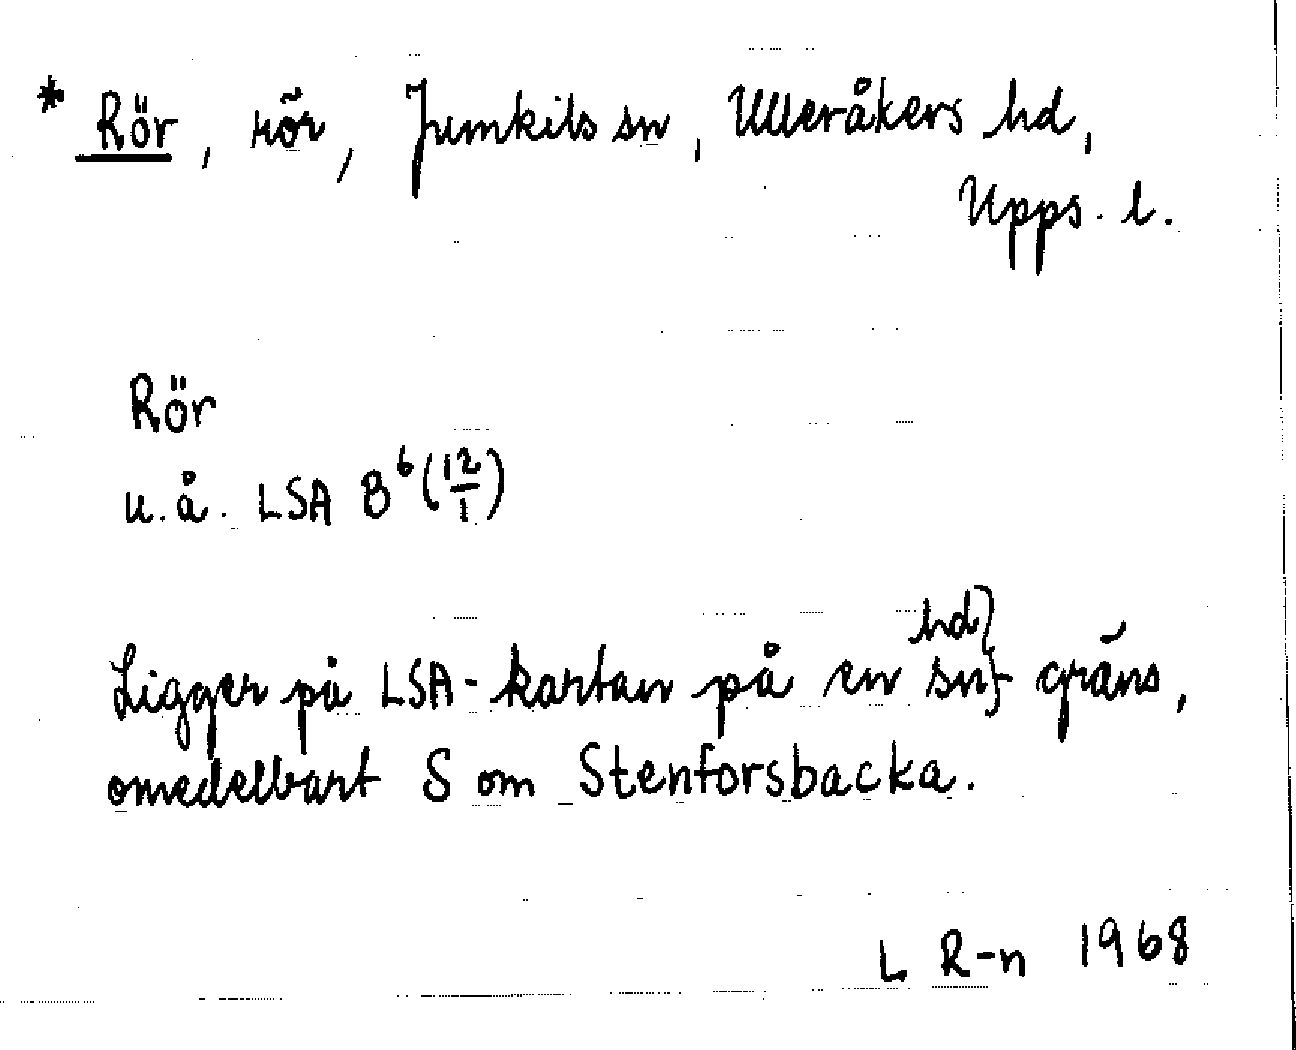 * Rör, rör, Jumkils sn, Ulleråkers hd,
Upps. l.
Rör
u.å. LSA B⁶(12/1)
Ligger på LSA-kartan på en hd}sn}-gräns,
omedelbart S om Stenforsbacka.
L R-n 1968